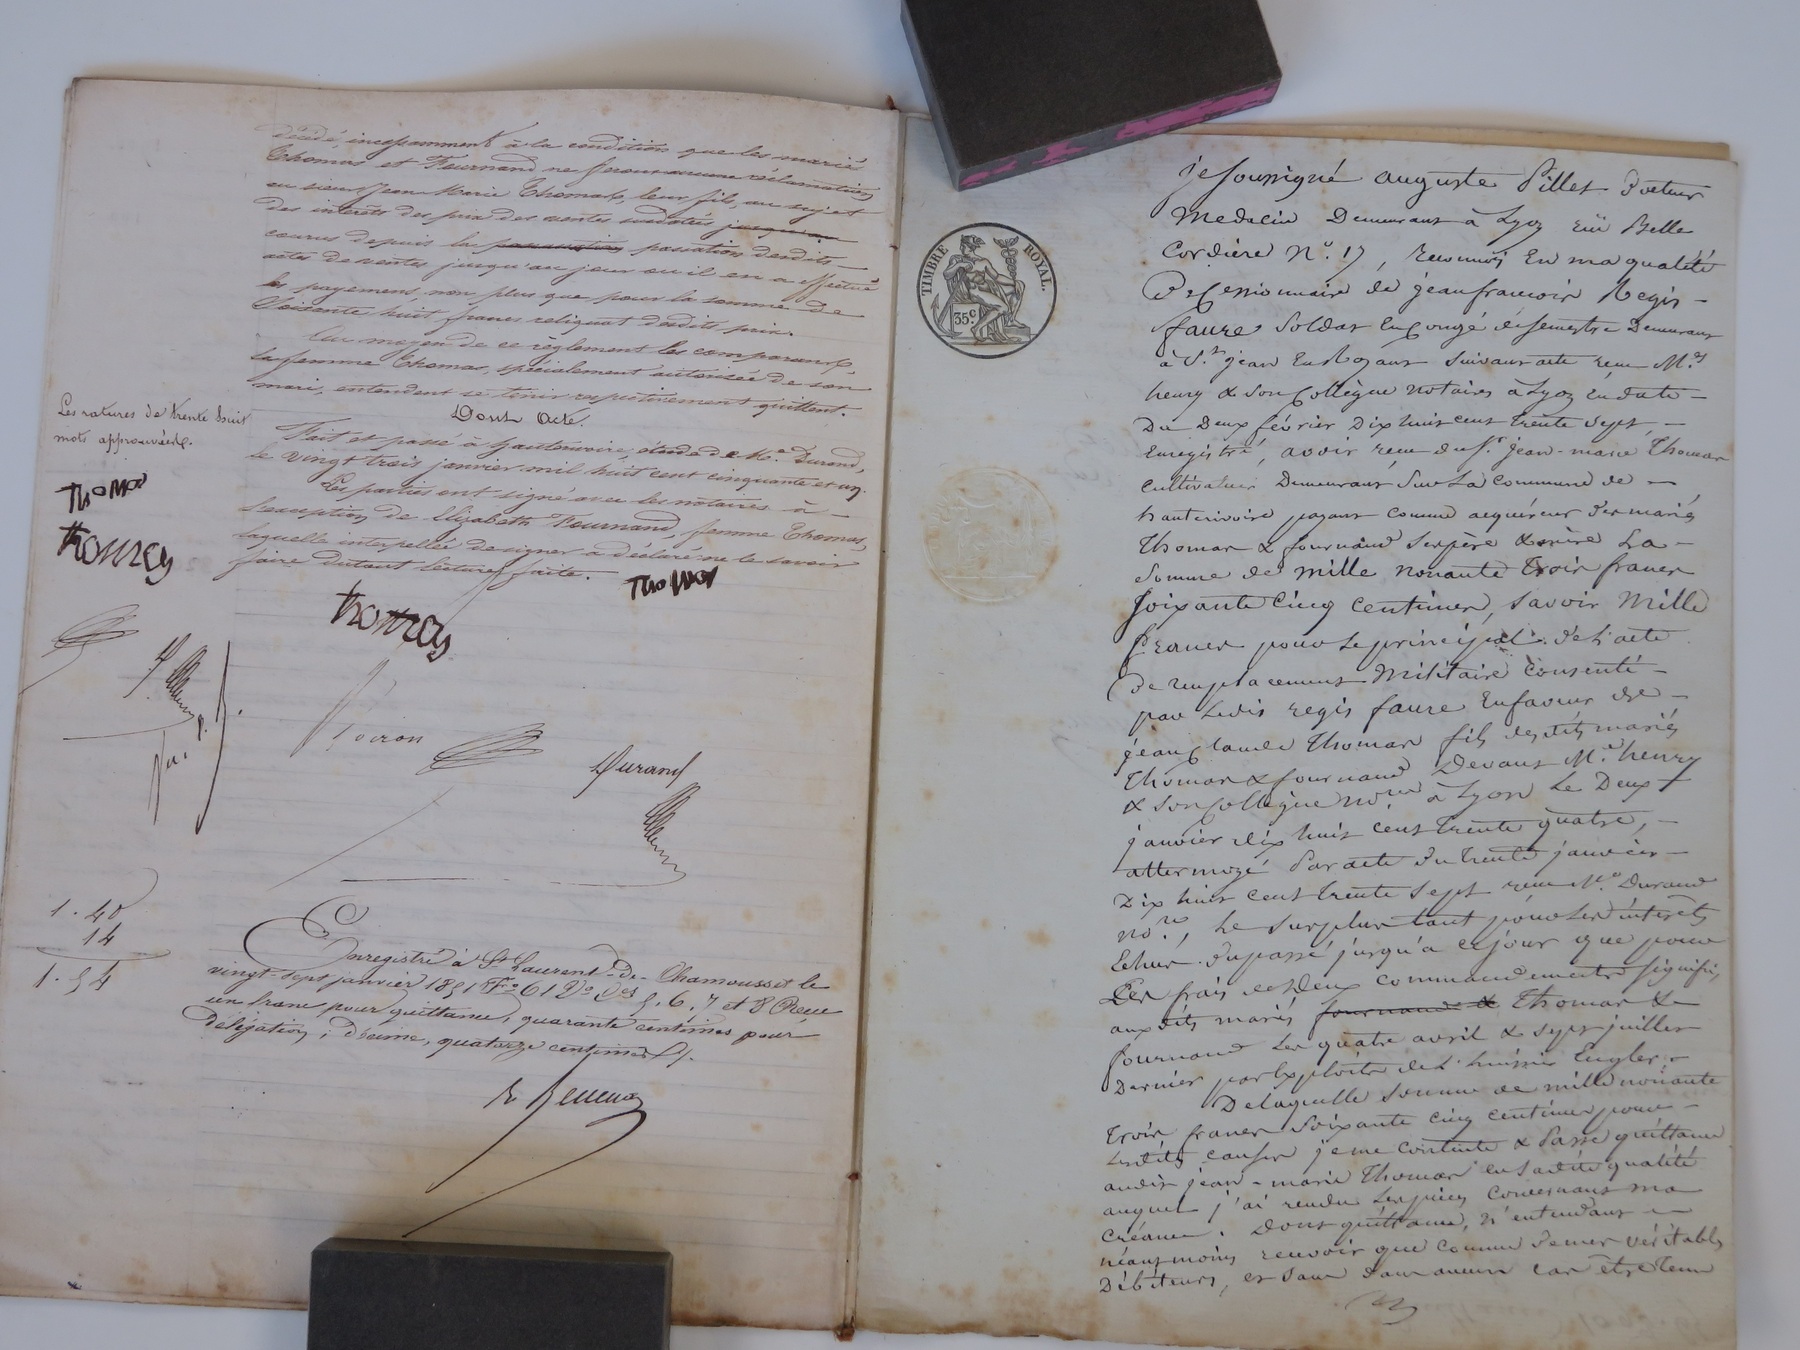 décédé, incessamment à la condition que les mariés
Thomas et Fournand ne feront aucune réclamation
au sieur Jean Marie Thomas, leur fils, au sujet
des intérêts des prix des ventes susdatées jusqu'au
courus depuis la passation desdits
actes de ventes jusqu'au jour où il en a effectué
les payemens, non plus que pour la somme de
Soixante huit francs reliquat desdits prix.
Au moyen de ce règlement les comparans,
la femme Thomas, spécialement autorisée de son
mari, entendent se tenir respectivement quittent.
Dont Acte.
Fait et passé à hauterivoire, étude de Me. Durand,
le vingt trois janvier mil huit cent cinquante et un.
Les parties ont signé avec les notaires à
l'exception de Elizabeth Fournand, femme Thomas,
laquelle interpellée de signer a déclaré ne le savoir
faire dutout lecture faite.
Les ratures de trente huit
mots approuvées.
Thomas
Thomas
Thomas
Thomas
Durand
1.40
14
1.54
Enregistré à St. Laurent-de-Chamousset le
vingt-sept janvier 1851 Fo 61 Vo Ces 5, 6, 7 et 8 Reçu
un franc pour quittance, quarante centimes pour
Délégation ; décime, quatorze centimes
TIMBRE ROYAL.
35 c.
je soussigné auguste Pillet Docteur
Medecin Demeurant à Lyon rüe Belle
Cordière No. 17, reconnois En ma qualité
De Cessionnaire de jean francois Regis
faure Soldat En Congé de semestre Demeurant
à St. jean En Royans suivant acte recu Me.
henry & Son Collègue notaires à Lyon En date
Du Deux février Dix huit cent trente sept,
Enregistré, avoir recu du Sr. jean-marie Thomas
Cultivateur Demeurant Sur La Commune de
hauterivoire payant comme acquéreur des mariés
Thomas & fournand Ses père & mère La
Somme de mille nonante trois francs
Soixante Cinq Centimes, savoir Mille
francs pour Le principal de L'acte
De remplacement Militaire Consenti
par Ledit regis faure En faveur de
jean Claude Thomas fils desdits mariés
Thomas & fournand Devant Me. henry
& Son Collègue nores à Lyon Le Deux
janvier dix huit cent trente quatre,
attermoyé Par acte du trente janvier
Dix huit cent trente Sept recu Me. Durand
nore., Le Surplus tant pour Les intérêts
Echus du passé jusqu'à ce jour que pour
Les frais des Deux commandements signifiés
auxdits mariés fournand & Thomas &
fournand Les quatre avril & sept juillet
Dernier par Exploits de L'huissier Engler
De laquelle Somme de mille nonante
trois francs Soixante Cinq centimes pour
Lesdits causes je me contente & Passe quittance
audit jean-marie Thomas en sadite qualité
auquel j'ai rendu Les pièces Concernant ma
Créance. Dont quittance, n'entendant
néanmoins recevoir que comme de mes véritables
Débiteurs, et sans dans aucun cas être tenu